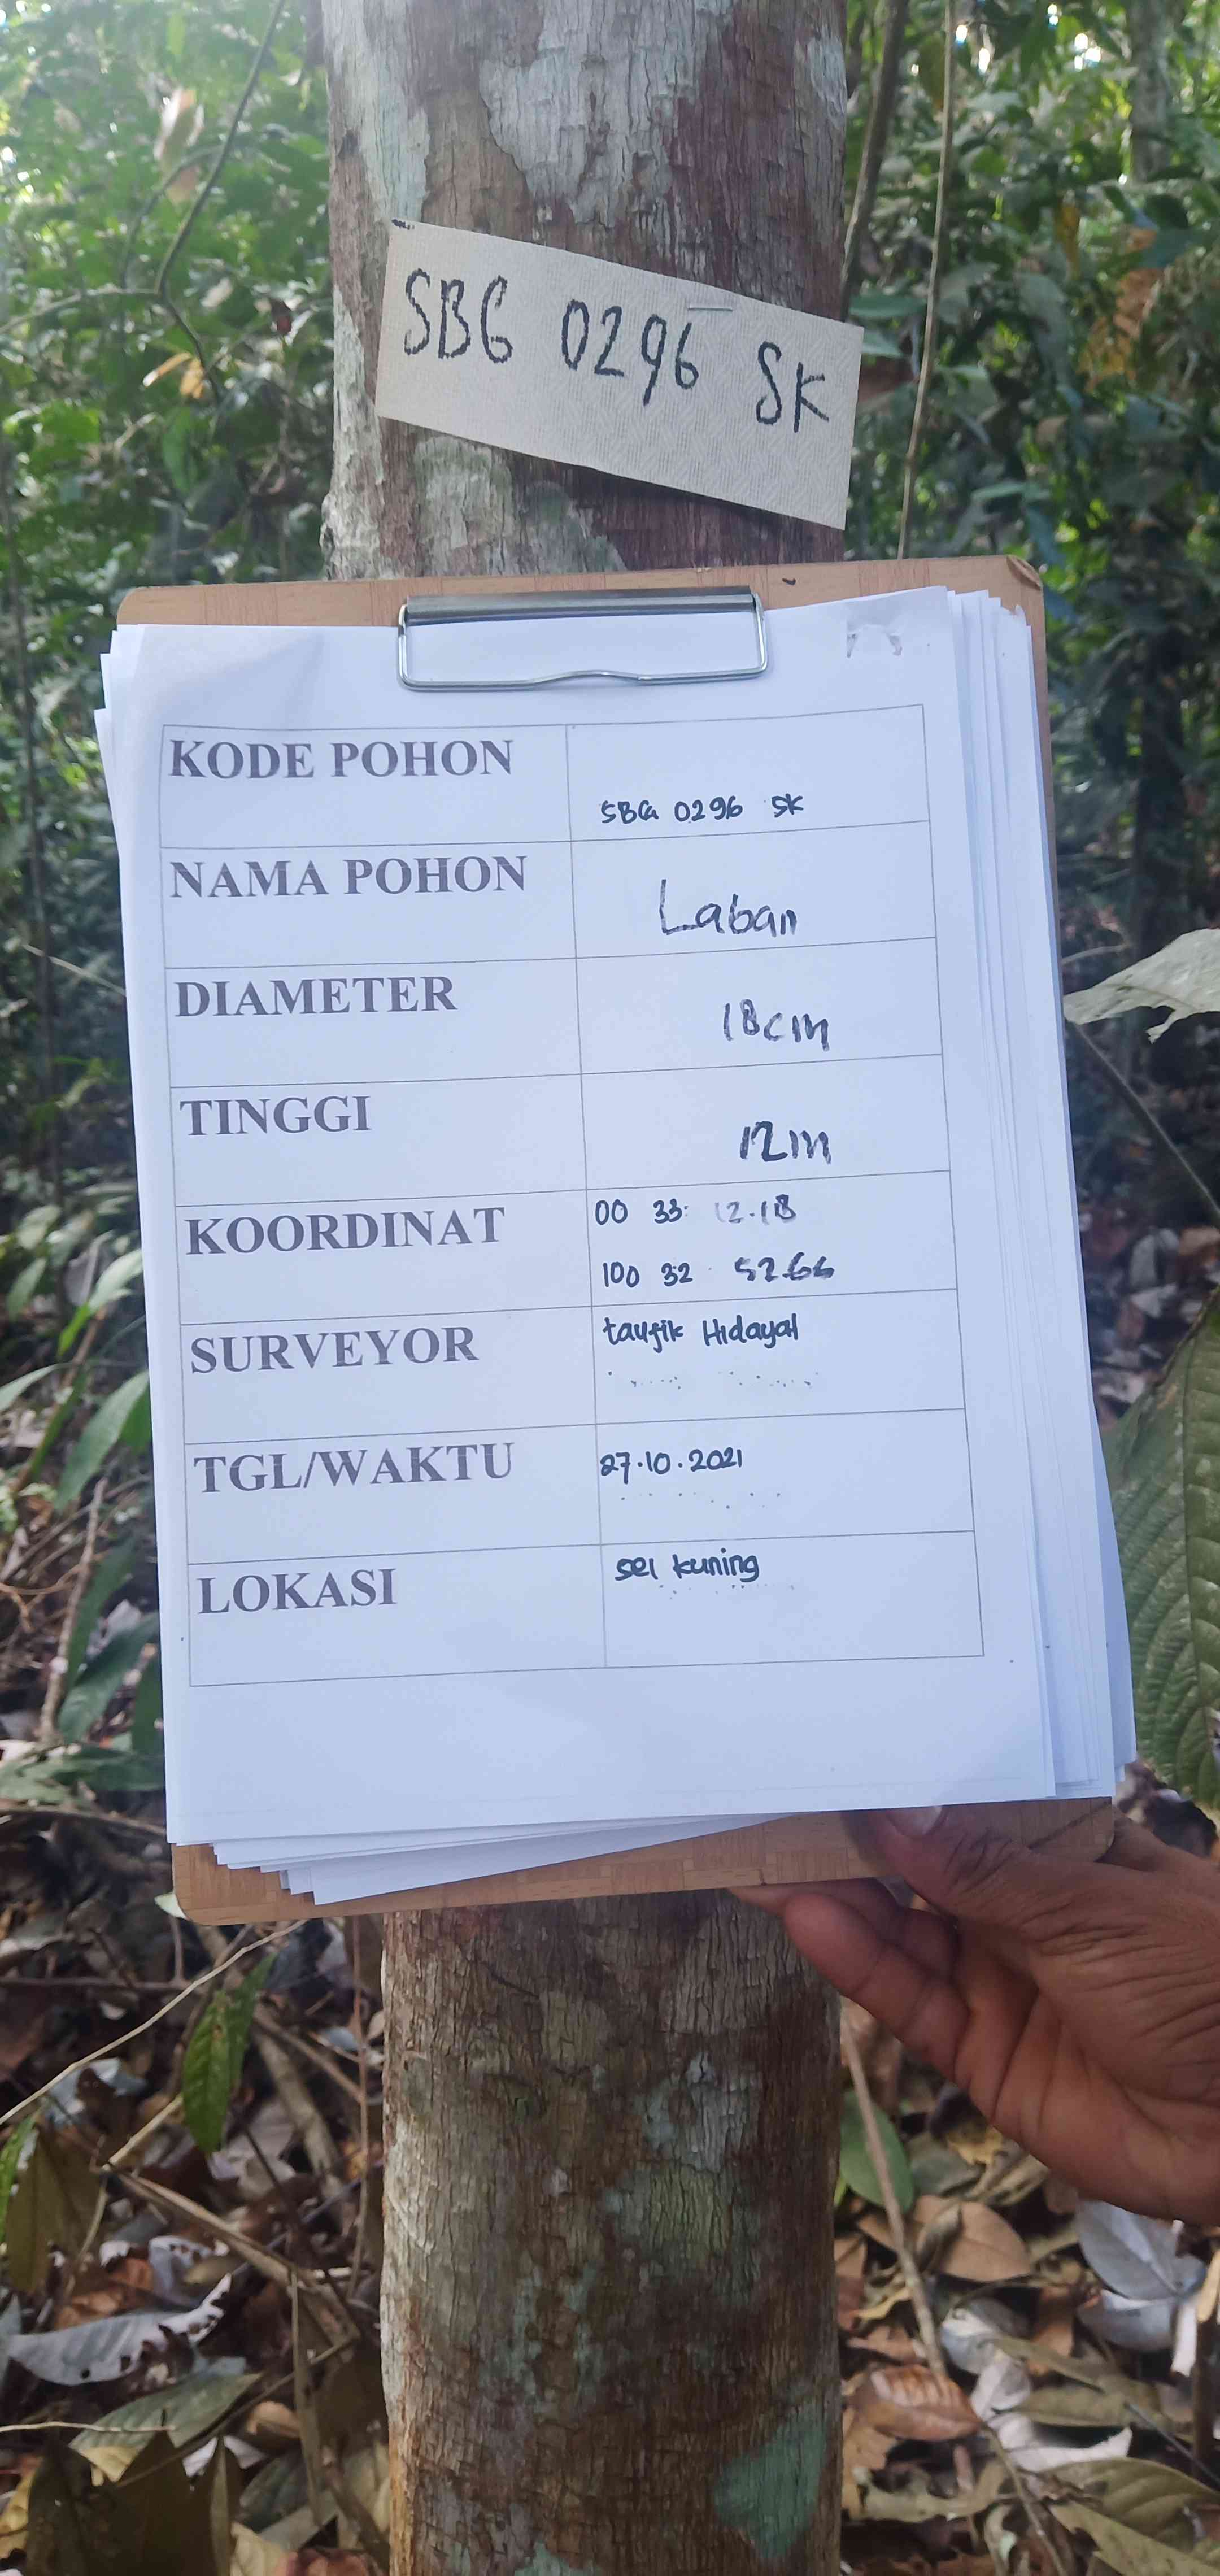 SBG 0296 SK
KODE POHON
SBG 0296 SK
NAMA POHON
Laban
DIAMETER
18cm
TINGGI
12m
KOORDINAT
00 33 12.18
100 32 52.66
SURVEYOR
taufik Hidayat
TGL/WAKTU
27.10.2021
LOKASI
sei kuning